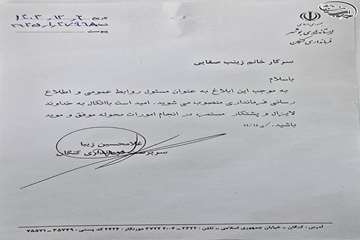 جمهوری اسلامی
استانداری بوشهر
فرمانداری کنگان
پیوست
سرکار خانم زینب صفایی
باسلام
به موجب این ابلاغ به عنوان مسئول روابط عمومی و اطلاع
رسانی فرمانداری منصوب می شوید. امید است باتکال به خداوند
لایزال و پشتکار مستمر، در انجام امورات محوله موفق و موید
باشید.
غلامحسین زیبا
سرپرست فرمانداری کنگان
آدرس: کنگان - خیابان جمهوری اسلامی - تلفن: